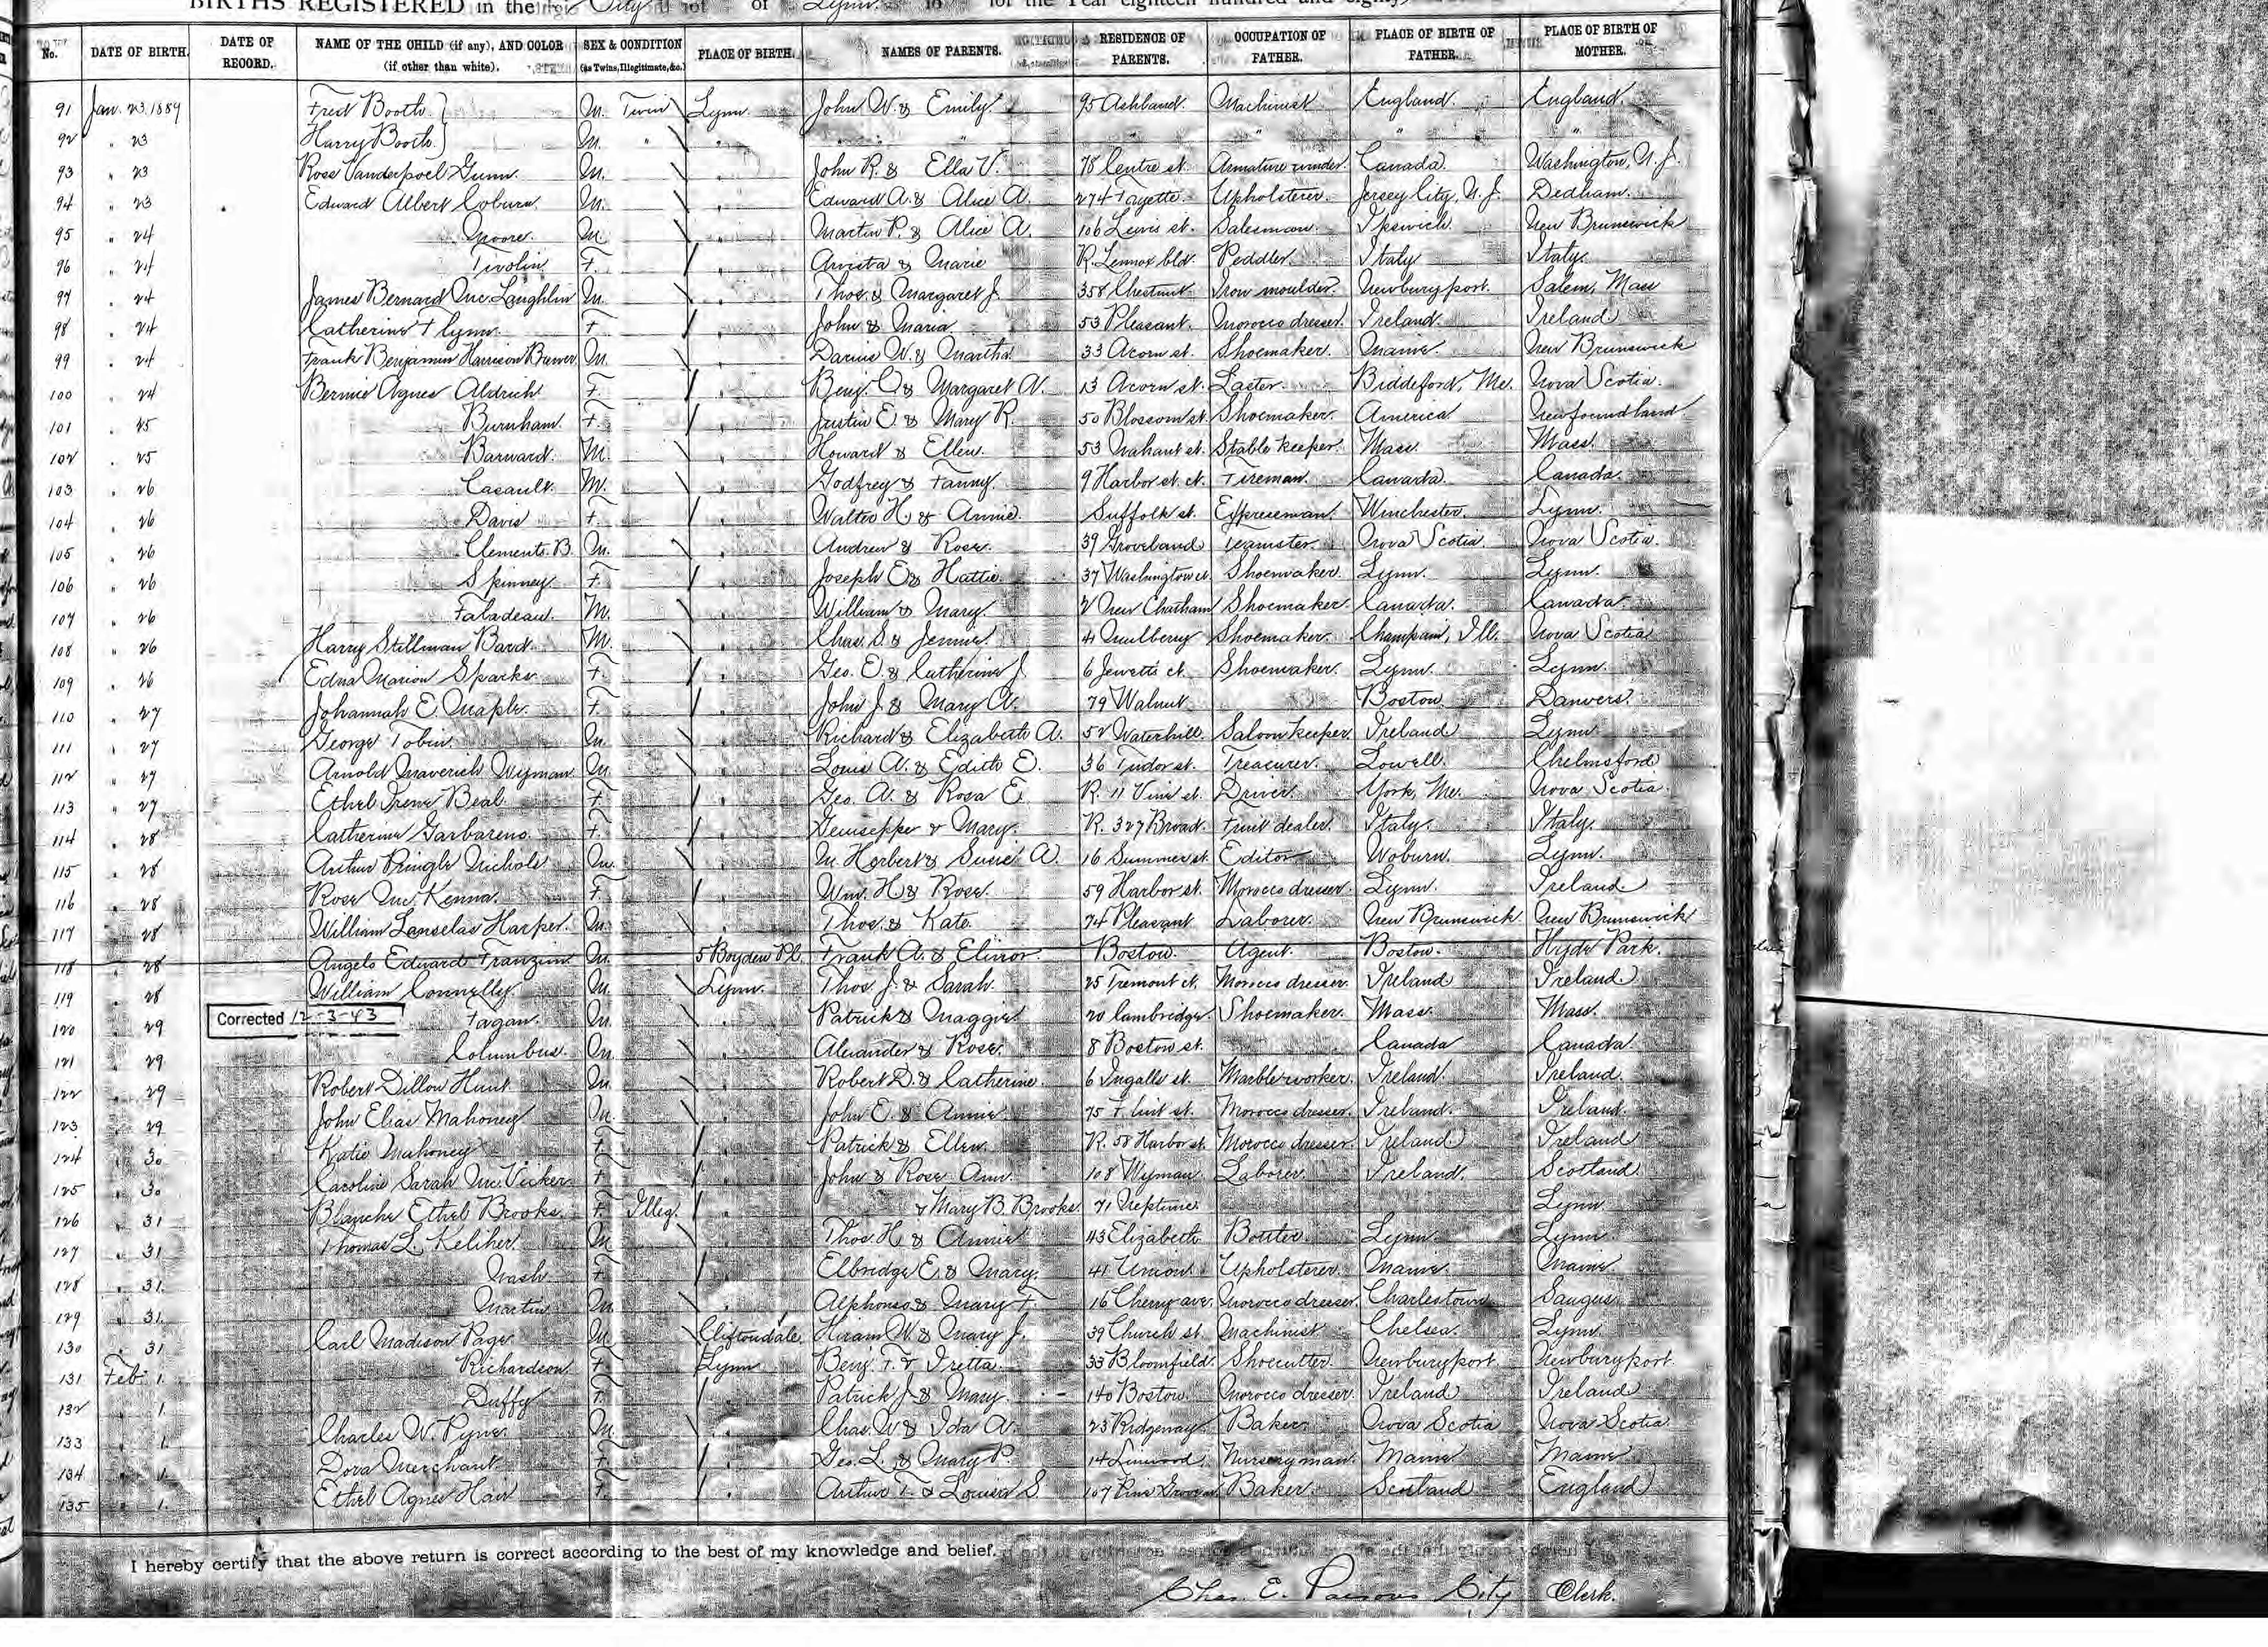 BIRTHS REGISTERED in the City of Lynn for the Year eighteen hundred and eighty
No. DATE OF BIRTH. DATE OF RECORD. NAME OF THE CHILD (if any), AND COLOR (if other than white). SEX & CONDITION (as Twins, Illegitimate, &c.) PLACE OF BIRTH. NAMES OF PARENTS. RESIDENCE OF PARENTS. OCCUPATION OF FATHER. PLACE OF BIRTH OF FATHER. PLACE OF BIRTH OF MOTHER.
91 Jan. 23 1889 Fred Booth M. Twin Lynn John W. & Emily 95 Ashland. Machinist England. England.
92 " 23 Harry Booth M. " " " " " "
93 " 23 Ross Vanderpoel Gunn. M. " John R. & Ella V. 78 Centre st. Armature winder. Canada. Washington, N.J.
94 " 23 Edward Albert Coburn. M. " Edward A. & Alice A. 274 Fayette. Upholsterer. Jersey City, N.J. Dedham.
95 " 24 Moore. M. " Martin P. & Alice A. 106 Lewis st. Salesman. Ipswich. New Brunswick
96 " 24 Tivolin F. " & Marie R. Lennox bld. Peddler. Italy Italy.
97 " 24 James Bernard McLaughlin M. " Thos. & Margaret J. 358 Chestnut. Iron moulder. Newburyport. Salem, Mass
98 " 24 Catherine Flynn. F. " John & Maria. 53 Pleasant. Morocco dresser. Ireland. Ireland
99 " 24 Frank Benjamin Harrison Brewer. M. " Darius W. & Martha 33 Acorn st. Shoemaker. Maine. New Brunswick
100 " 24 Bernice Agnes Aldrich F. " Benj. C. & Margaret A. 13 Acorn st. Laster. Biddeford, Me. Nova Scotia.
101 " 25 Burnham. F. " Justin E. & Mary R. 50 Blossom st. Shoemaker. America Newfoundland.
102 " 25 Barnard. M. " Howard & Ellen. 53 Nahant st. Stable keeper. Mass. Mass.
103 " 26 Casault. M. " Godfrey & Fanny. 9 Harbor st. ct. Fireman. Canada. Canada.
104 " 26 Davis F. " Walter H. & Annie. Suffolk st. Expressman. Winchester. Lynn.
105 " 26 Clements. B. M. " Andrew & Rose. 39 Groveland Teamster. Nova Scotia. Nova Scotia.
106 " 26 Spinney. F. " Joseph E. & Hattie 37 Washington st. Shoemaker. Lynn. Lynn.
107 " 26 Faladeau. M. " William & Mary. 2 New Chatham Shoemaker. Canada. Canada.
108 " 26 Harry Stillman Bard. M. " Chas. S. & Jennie. 41 Mulberry Shoemaker. Champain, Ill. Nova Scotia
109 " 26 Edna Marion Sparks F. " Geo. E. & Catherine J. 6 Jewetts ct. Shoemaker. Lynn. Lynn.
110 " 27 Johannah E. Maple. F. " John J. & Mary A. 79 Walnut Boston. Danvers.
111 " 27 George Tobin. M. " Richard & Elizabeth A. 52 Waterhill. Saloon keeper. Ireland Lynn.
112 " 27 Arnold Maverick Wyman M. " Louis A. & Edith E. 36 Tudor st. Treasurer. Lowell. Chelmsford
113 " 27 Ethel Irene Beal. F. " Geo. A. & Rosa E. R. 11 Vine st. Driver. York, Me. Nova Scotia.
114 " 28 Catherine Garbareno. F. " Geuseppe & Mary. R. 327 Broad. Fruit dealer. Italy. Italy.
115 " 28 Arthur Pringle Nichols M. " M. Herbert & Susie A. 16 Summer st. Editor Woburn. Lynn.
116 " 28 Rose McKenna. F. " Wm. H. & Rose. 59 Harbor st. Morocco dresser. Lynn. Ireland
117 " 28 William Lanselas Harper. M. " Thos. & Kate. 74 Pleasant Laborer. New Brunswick New Brunswick
118 " 28 Angelo Edward Franzini M. 5 Boyden Pl. Frank A. & Elinor. Boston. Agent. Boston. Hyde Park.
119 " 28 William Connelly. M. Lynn. Thos. J. & Sarah. 25 Tremont ct. Morocco dresser. Ireland Ireland
Corrected 12-3-43
120 " 29 Fagan. M. " Patrick & Maggie 20 Cambridge. Shoemaker. Mass. Mass.
121 " 29 Columbus. M. " Alexander & Rose. 8 Boston st. Canada Canada.
122 " 29 Robert Dillon Hunt. M. " Robert D. & Catherine. 6 Ingalls st. Marble worker. Ireland. Ireland.
123 " 29 John Elias Mahoney M. " John E. & Annie 75 Flint st. Morocco dresser. Ireland. Ireland.
124 " 30 Katie Mahoney F. " Patrick & Ellen. R. 58 Harbor st. Morocco dresser Ireland Ireland
125 " 30 Caroline Sarah McVicker F. " John & Rose Ann. 108 Wyman. Laborer. Ireland. Scotland.
126 " 31 Blanche Ethel Brooks. F. Illeg. " & Mary B. Brooks. 71 Neptune. Lynn
127 " 31 Thomas L. Keliher. M. " Thos. H. & Annie 43 Elizabeth Lynn. Lynn.
128 " 31. Nash. F. " Elbridge E. & Mary. 41 Union. Upholsterer. Maine. Maine
129 " 31. Martin M. " Alphonso & Mary F. 16 Cherry ave. Morocco dresser. Charlestown Saugus.
130 " 31 Carl Madison Page. M. Cliftondale. Hiram W. & Mary J. 39 Church st. Machinist Chelsea. Lynn.
131 Feb. 1. Richardson F. Lynn Benj. F. & Iretta. 33 Bloomfield. Shoecutter. Newburyport. Newburyport
132 " 1. Duffy F. " Patrick J. & Mary. 140 Boston. Morocco dresser. Ireland Ireland
133 " 1. Charles W. Pyne. M. " Chas. W. & Ida A. 23 Ridgeway Baker. Nova Scotia Nova Scotia
134 " 1. Dora Merchant. F. " Geo. L. & Mary P. 14 Linwood. Nurseryman. Maine Maine
135 " 1. Ethel Agnes Hair F. " Arthur T. & Louisa S. 107 Pine Grove Baker. Scotland England
I hereby certify that the above return is correct according to the best of my knowledge and belief.
Chas. E. Parsons City Clerk.